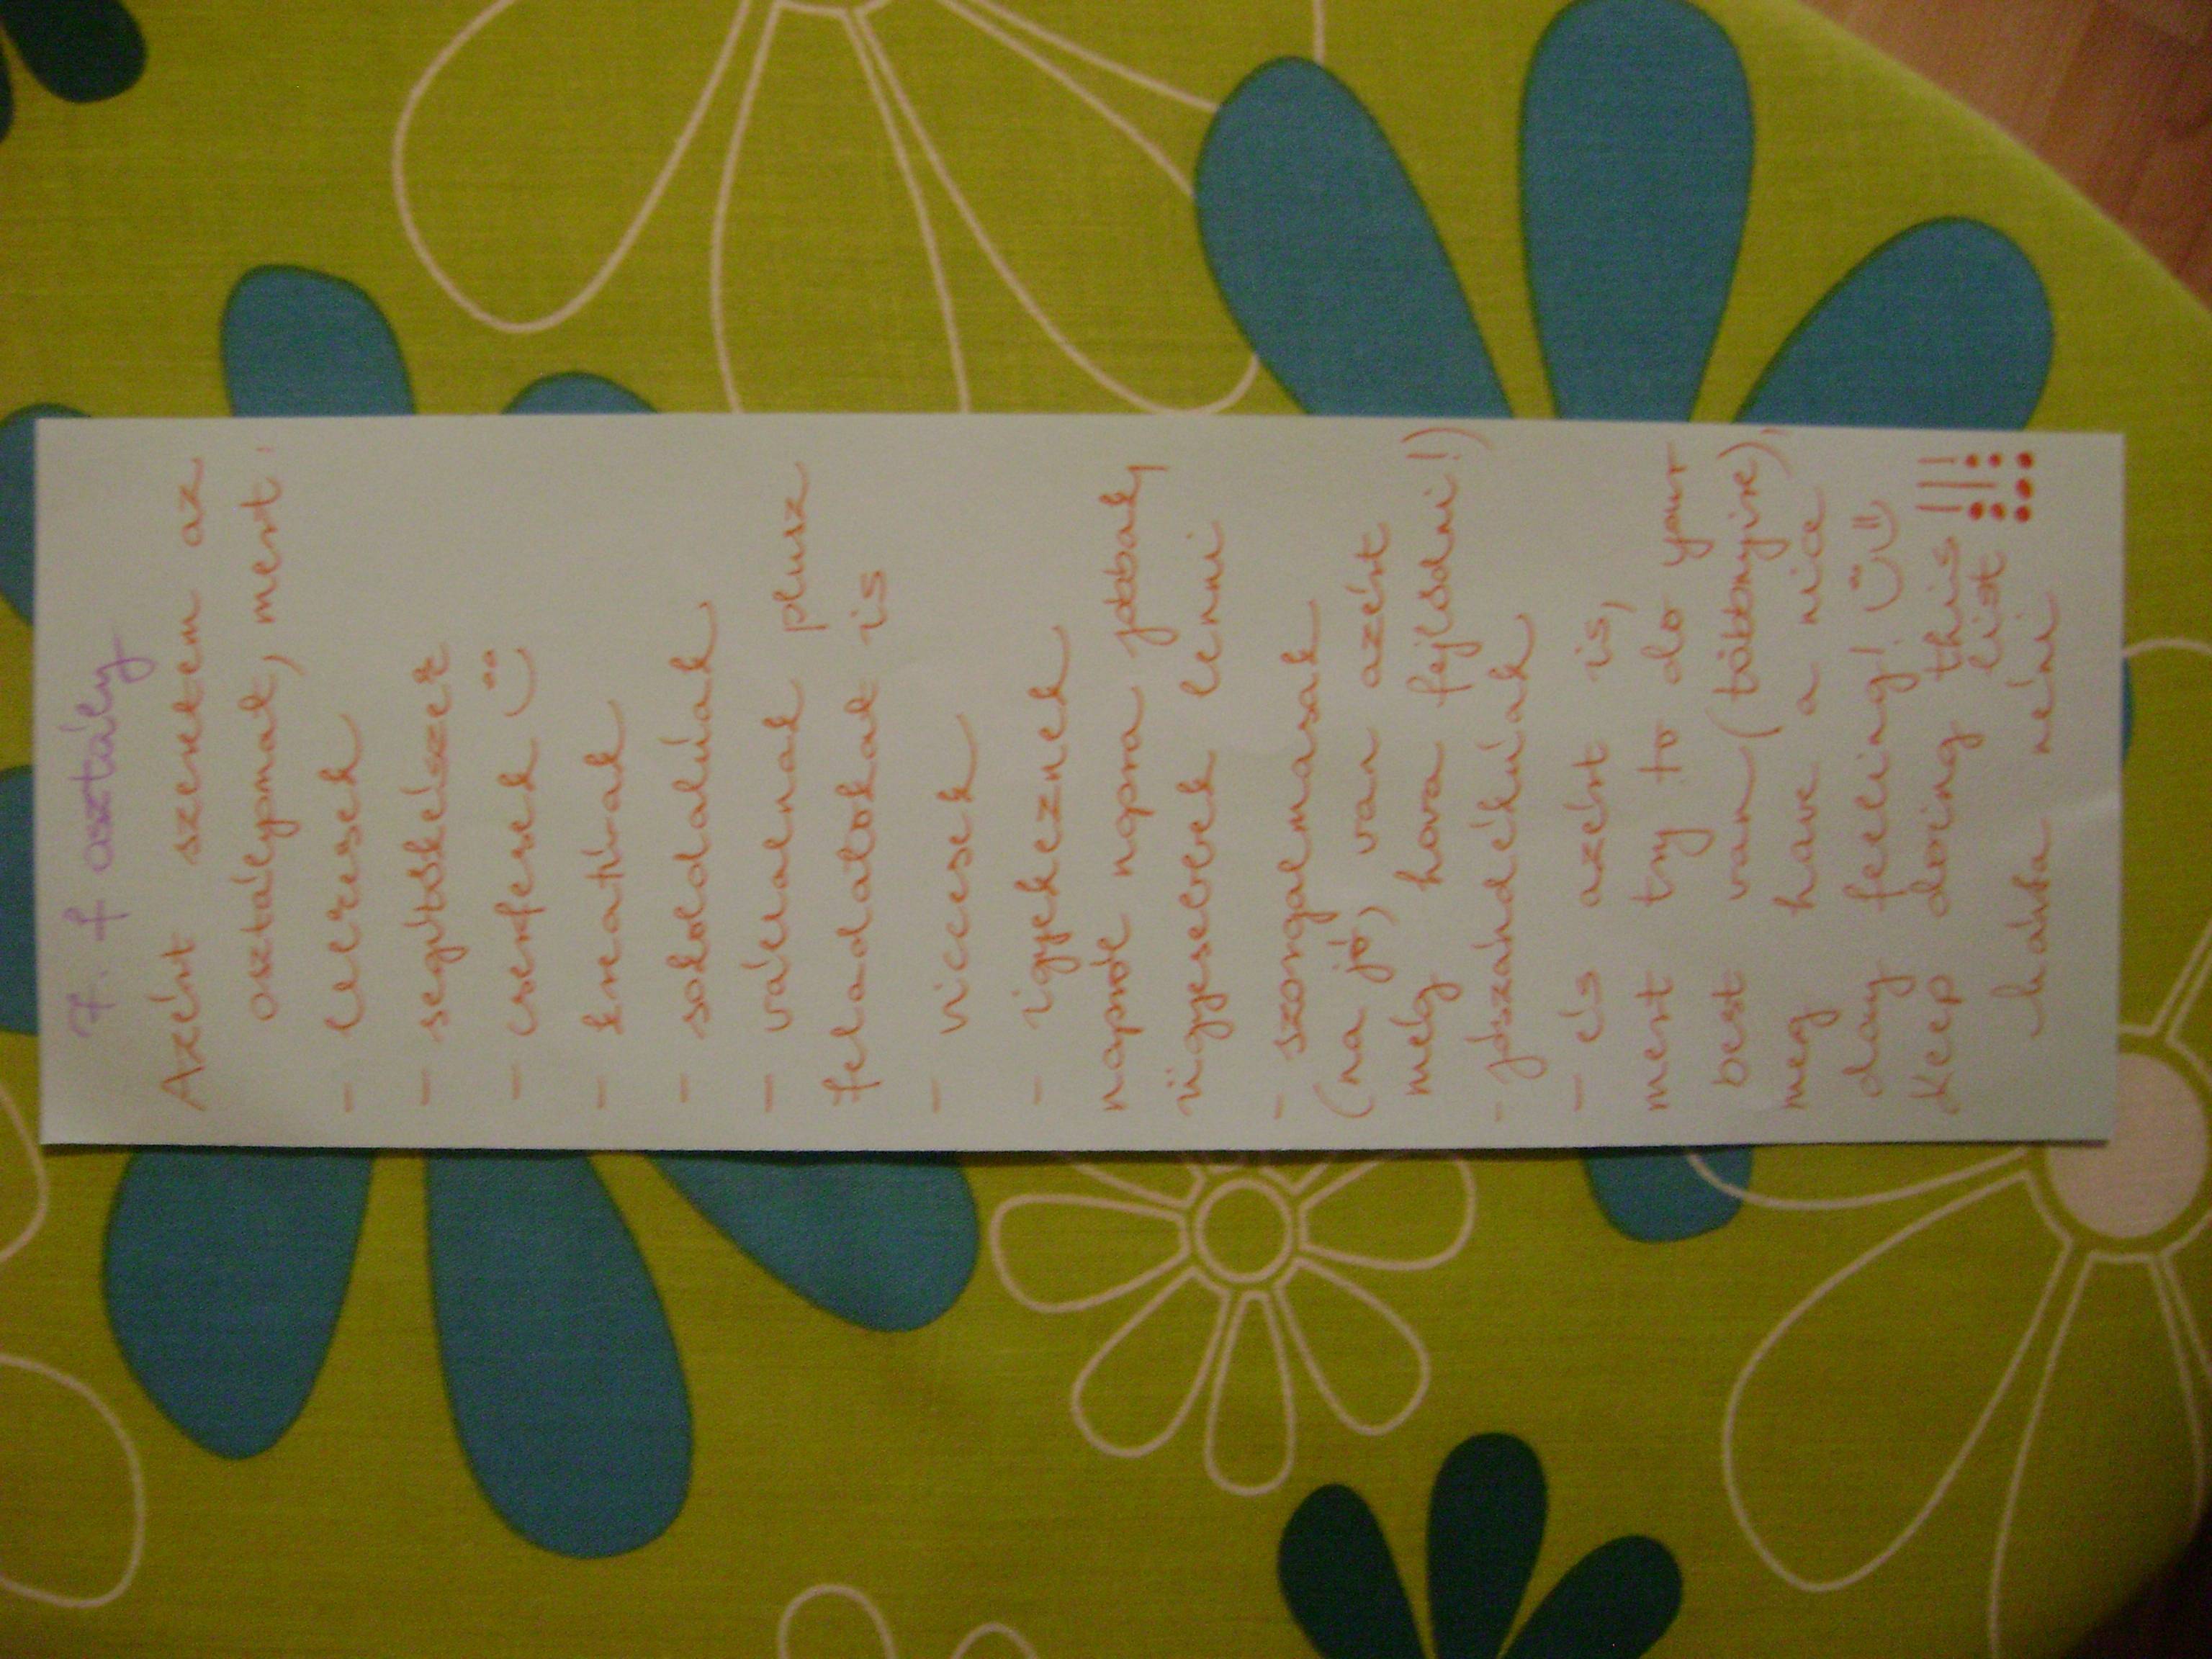 7. f osztály
Azért szeretem az
osztályomat, mert:
- cserfesek
- segítőkészek
- cserfesek
- kreatívak
- sokoldalúak
- vállalnak plusz
feladatokat is
- viccesek
- igyekeznek
napról napra jobbak,
ügyesebbek lenni
- szorgalmasak
(na jó, van azért
még hova fejlődni!)
- jószándékúak
- és azért is,
mert try to do your
best van (többnyire),
meg have a nice
day feeling! :)
Keep doing this !!!
list
néni